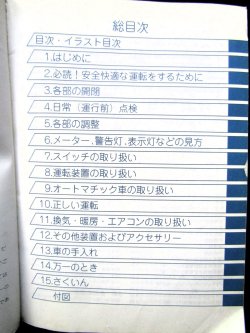 総目次
目次・イラスト目次
1.はじめに
2.必読!安全快適な運転をするために
3.各部の開閉
4.日常(運行前)点検
5.各部の調整
6.メーター､警告灯､表示灯などの見方
7.スイッチの取り扱い
8.運転装置の取り扱い
9.オートマチック車の取り扱い
10.正しい運転
11.換気・暖房・エアコンの取り扱い
12.その他装置およびアクセサリー
13.車の手入れ
14.万一のとき
15.さくいん
付図